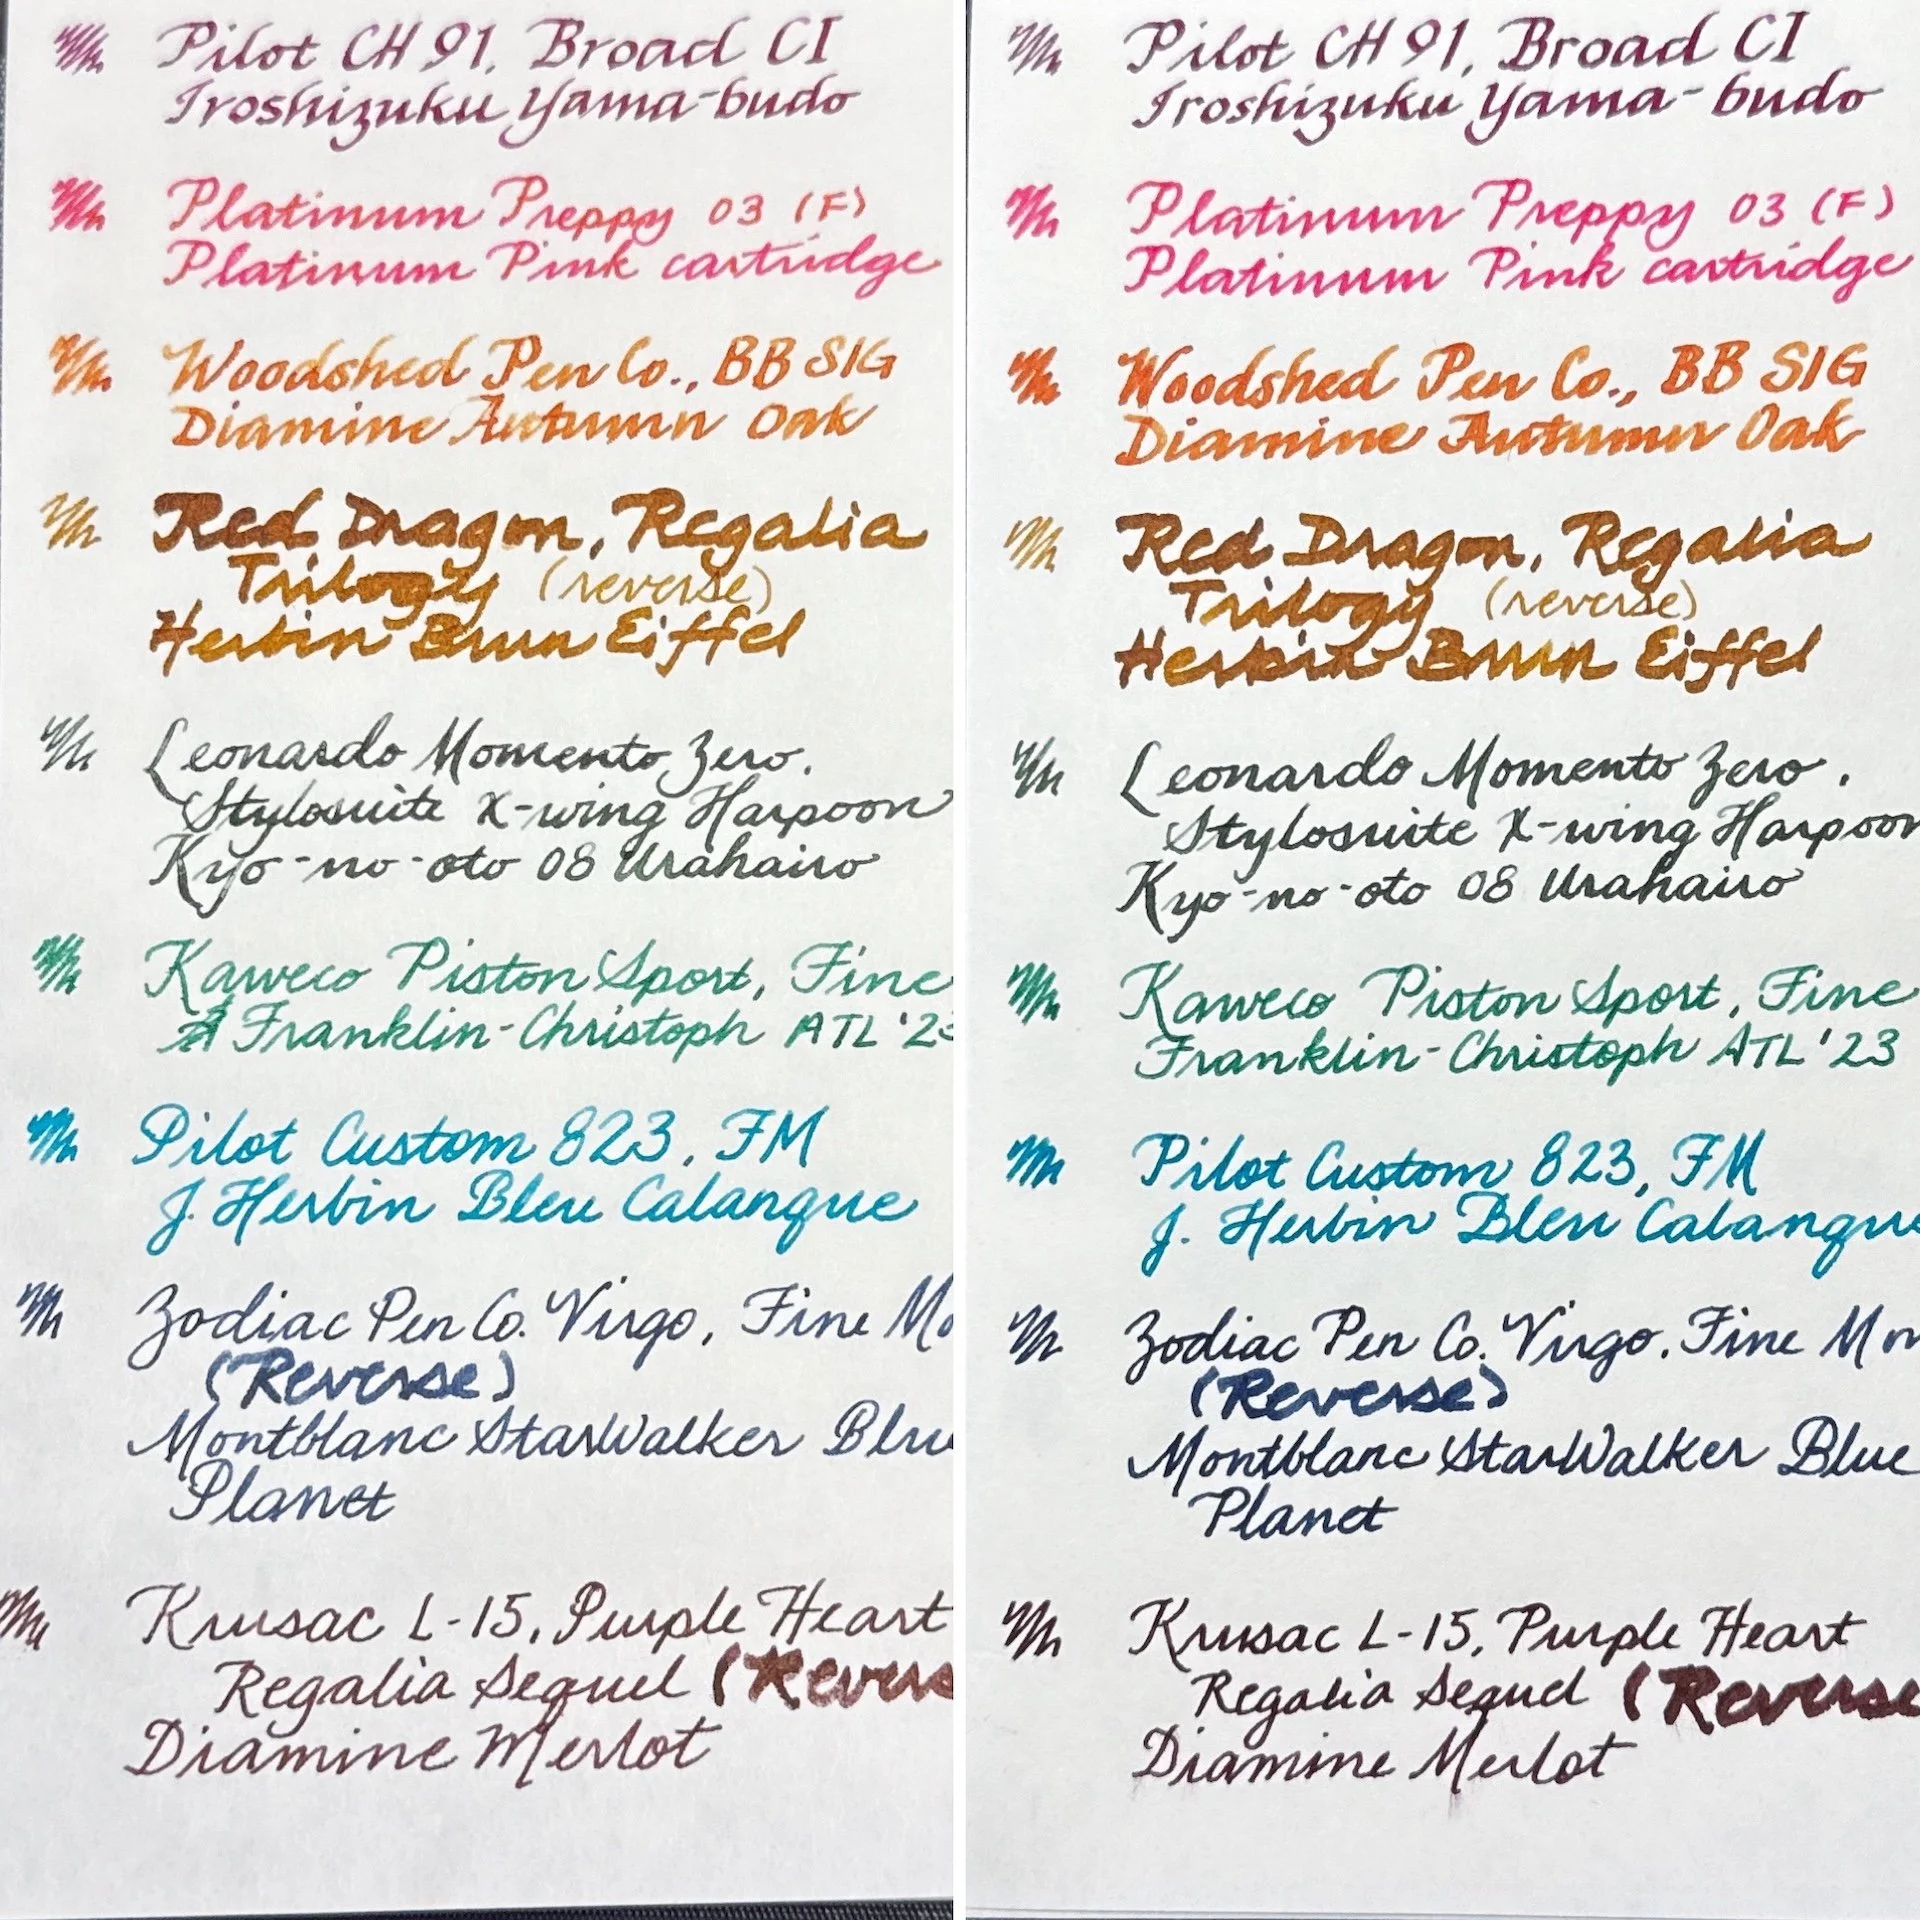 Pilot CH 91, Broad CI
Iroshizuku Yama-budo
Platinum Preppy 03 (F)
Platinum Pink cartridge
Woodshed Pen Co., BB SIG
Diamine Autumn Oak
Red Dragon, Regalia
Trilogy (reverse)
Herbin Brun Eiffel
Leonardo Momento Zero,
Stylosuite X-wing Harpoon
Kyo-no-oto 08 Urahairo
Kaweco Piston Sport, Fine
Franklin-Christoph ATL '23
Pilot Custom 823, FM
J. Herbin Bleu Calanque
Zodiac Pen Co. Virgo, Fine Mo
(Reverse)
Montblanc StarWalker Blu
Planet
Krusac L-15, Purple Heart
Regalia Sequel (Revers
Diamine Merlot
Pilot CH 91, Broad CI
Iroshizuku Yama-budo
Platinum Preppy 03 (F)
Platinum Pink cartridge
Woodshed Pen Co., BB SIG
Diamine Autumn Oak
Red Dragon, Regalia
Trilogy (reverse)
Herbin Brun Eiffel
Leonardo Momento Zero,
Stylosuite X-wing Harpoon
Kyo-no-oto 08 Urahairo
Kaweco Piston Sport, Fine
Franklin-Christoph ATL '23
Pilot Custom 823, FM
J. Herbin Bleu Calanque
Zodiac Pen Co. Virgo, Fine Mon
(Reverse)
Montblanc StarWalker Blue
Planet
Krusac L-15, Purple Heart
Regalia Sequel (Reverse
Diamine Merlot